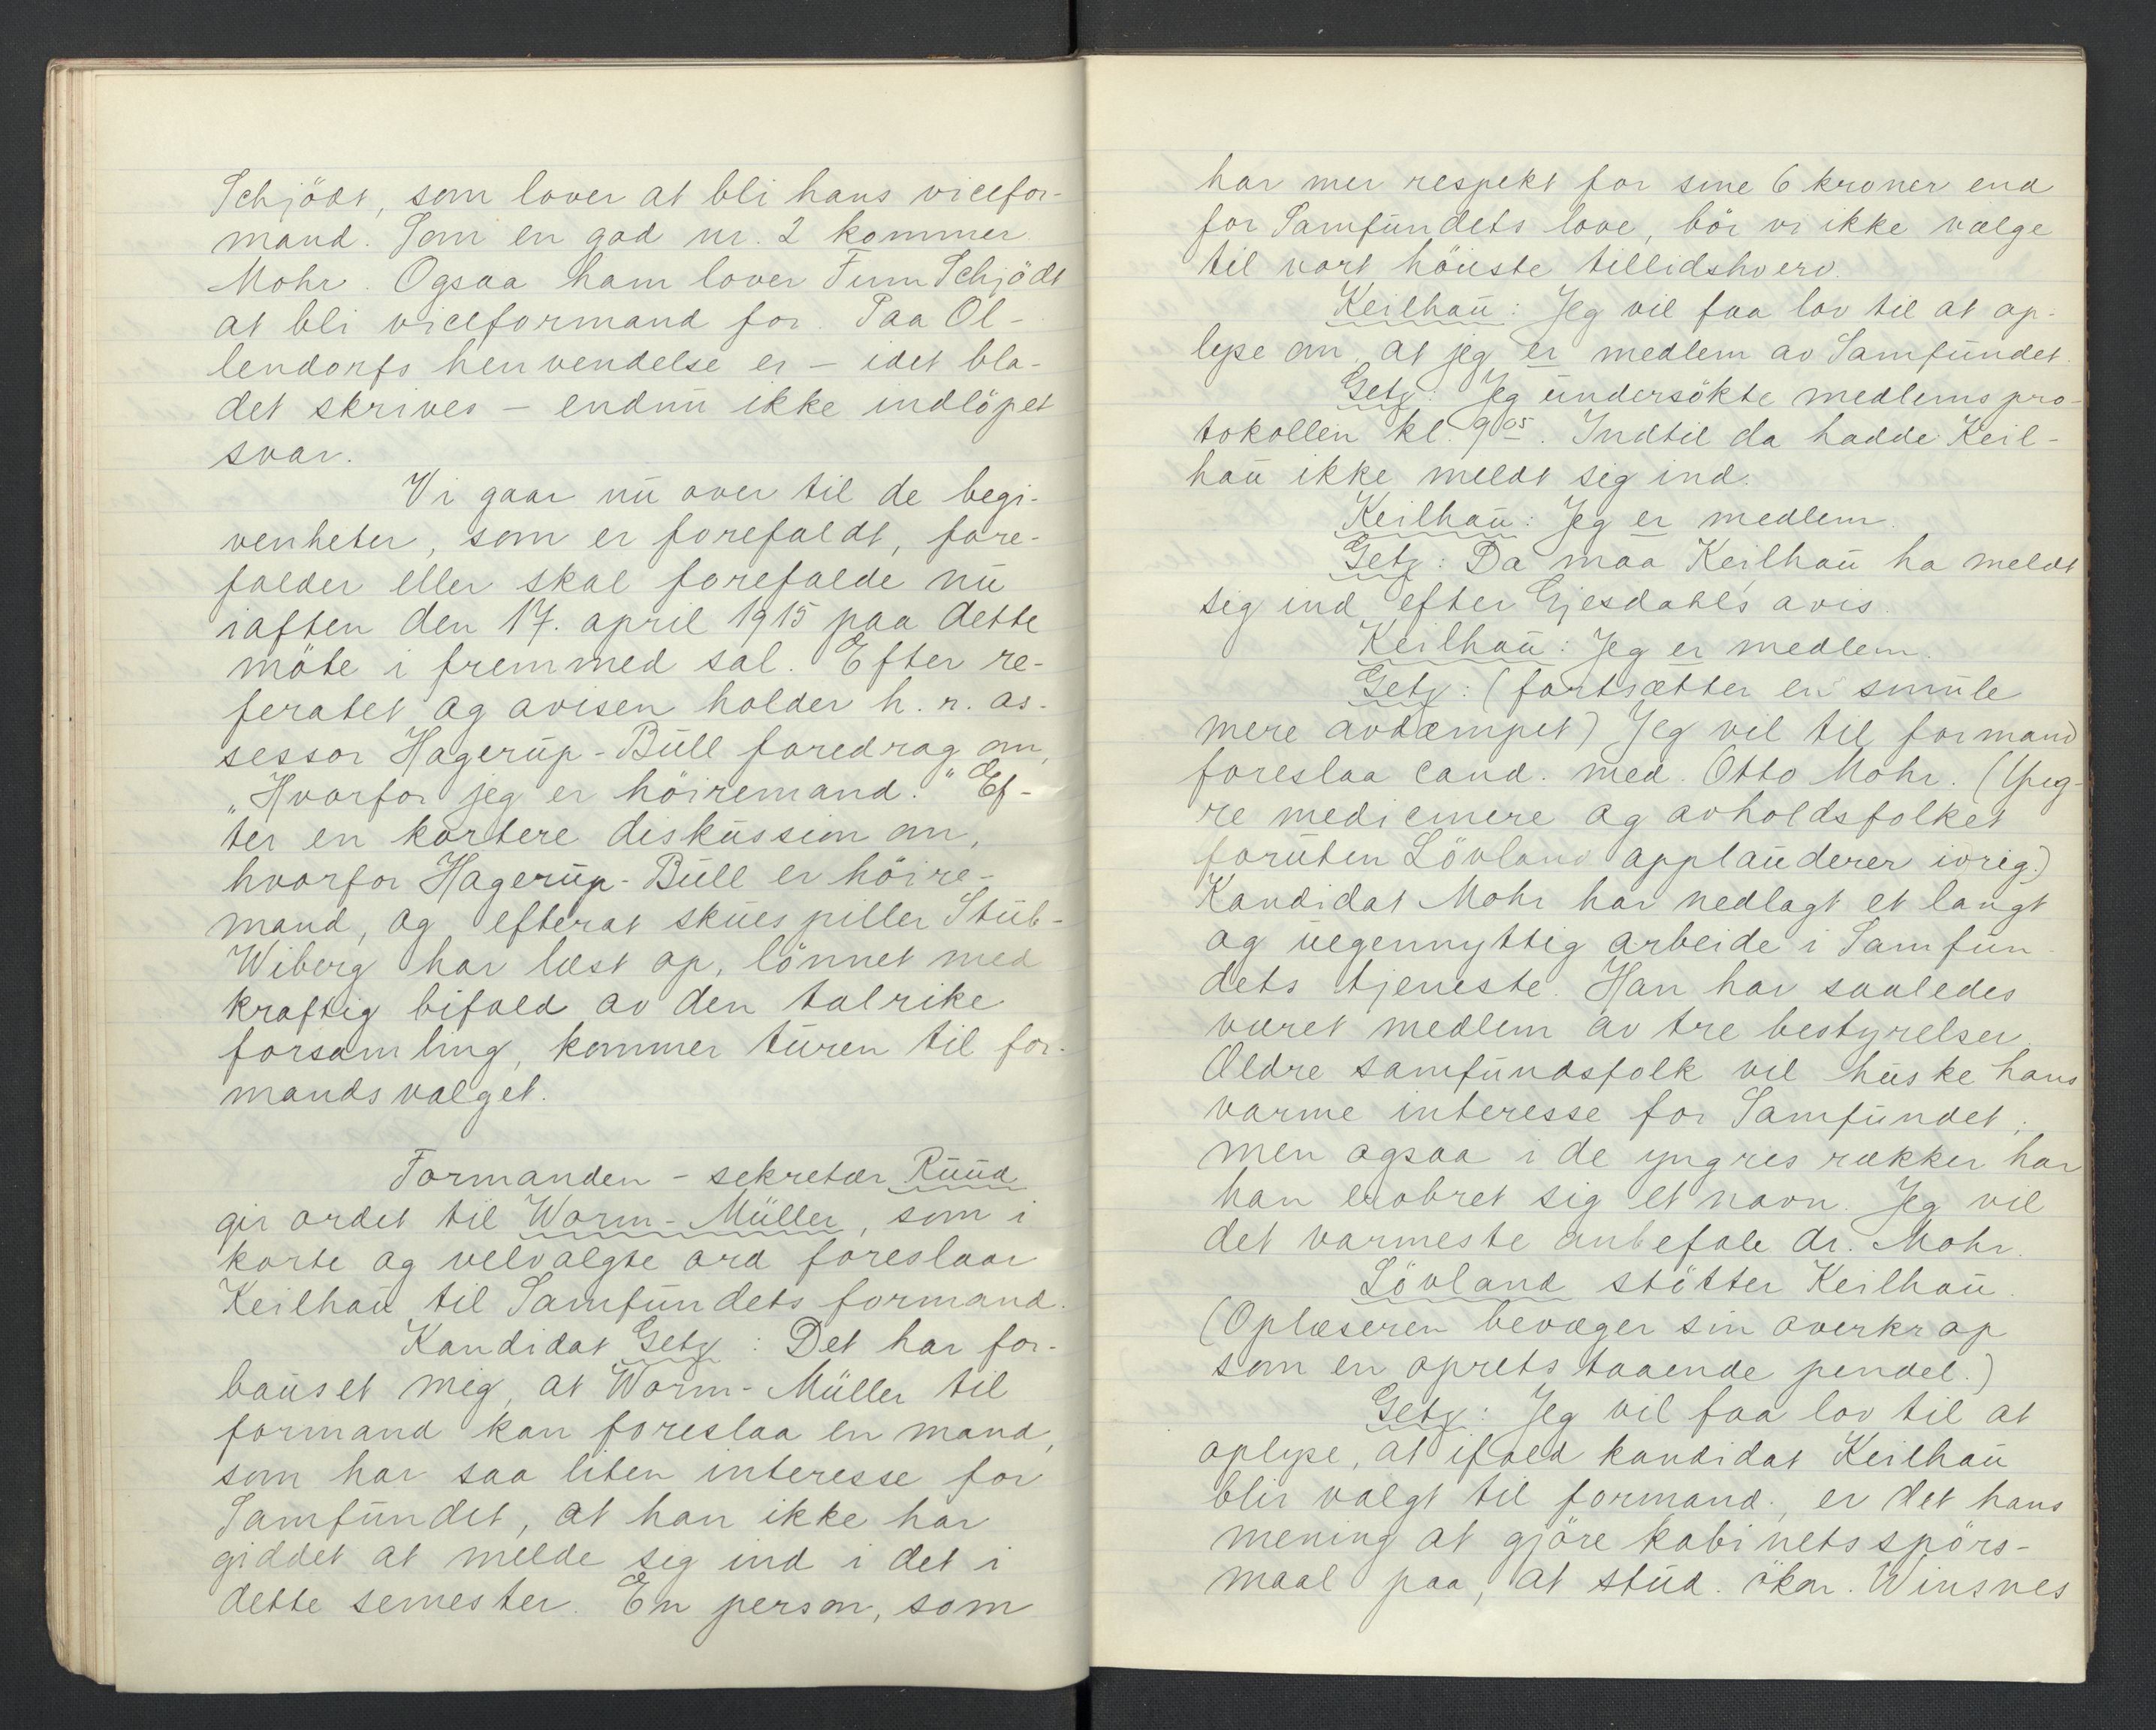 Schjödt, som lover at bli hans vicefor-
mand. Som en god nr. 2 kommer
Mohr. Ogsaa ham lover Finn Schjödt
at bli viceformand for. Paa Ol-
lendorfs henvendelse er – idet bla-
det skrives – endnu ikke indlöpet
svar.
Vi gaar nu over til de begi-
venheter, som er forefaldt, fore-
falder eller skal forefalde nu
iaften den 17. april 1915 paa dette
möte i fremmed sal. Efter re-
feratet og avisen holder h. r. as-
sessor Hagerup-Bull foredrag om,
„Hvorfor jeg er höiremand." Ef-
ter en kortere diskussion om,
hvorfor Hagerup-Bull er höire-
mand, og efterat skuespiller Stub-
Wiberg har læst op, lönnet med
kraftig bifald av den talrike
forsamling, kommer turen til for-
mandsvalget.
Formanden – sekretær Ruud
gir ordet til Worm-Müller, som i
korte og velvalgte ord foreslaar
Keilhau til Samfundets formand.
Kandidat Getz: Det har for-
bauset mig, at Worm-Müller til
formand kan foreslaa en mand,
som har saa liten interesse for
Samfundet, at han ikke har
giddet at melde sig ind i det i
dette semester. En person, som
har mer respekt for sine 6 kroner end
for Samfundets love, bör vi ikke vælge
til vort höieste tillidshverv.
Keilhau: Jeg vil faa lov til at op-
lyse om, at jeg er medlem av Samfundet.
Getz: Jeg undersökte medlemspro-
tokollen kl. 9 05. Indtil da hadde Keil-
hau ikke meldt sig ind.
Keilhau: Jeg er medlem.
Getz: Da maa Keilhau ha meldt
sig ind efter Gjesdahls avis.
Keilhau: Jeg er medlem.
Getz: (fortsætter en smule
mere avdæmpet) Jeg vil til formand
foreslaa cand. med. Otto Mohr. (Yng-
re medicinere og avholdsfolket
foruten Lövland applauderer ivrig.)
Kandidat Mohr har nedlagt et langt
og uegennyttig arbeide i Samfun-
dets tjeneste. Han har saaledes
været medlem av tre bestyrelser.
Ældre samfundsfolk vil huske hans
varme interesse for Samfundet;
men ogsaa i de yngres rækker har
han erobret sig et navn. Jeg vil
det varmeste anbefale dr. Mohr.
Lövland stötter Keilhau.
(Oplæseren bevæger sin overkrop
som en opretstaaende pendel.)
Getz: Jeg vil faa lov til at
oplyse, at ifald kandidat Keilhau
blir valgt til formand, er det hans
mening at gjöre kabinetsspörs-
maal paa, at stud. ökon. Winsnes